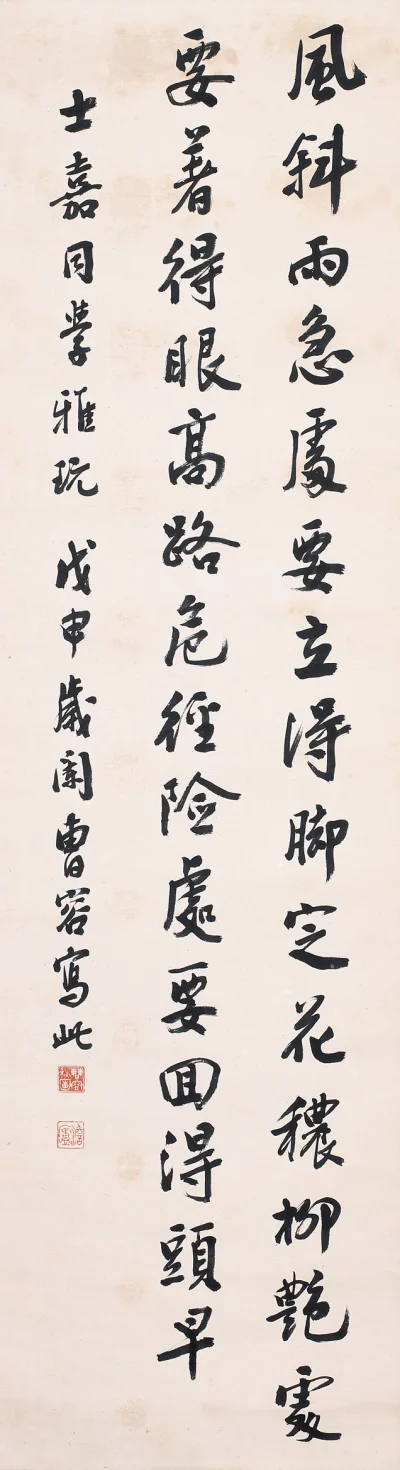 風斜雨急處要立得脚定花穠柳艷處
要著得眼高路危徑險處要回得頭早
士嘉同學雅玩 戊申歲闌曹容寫此